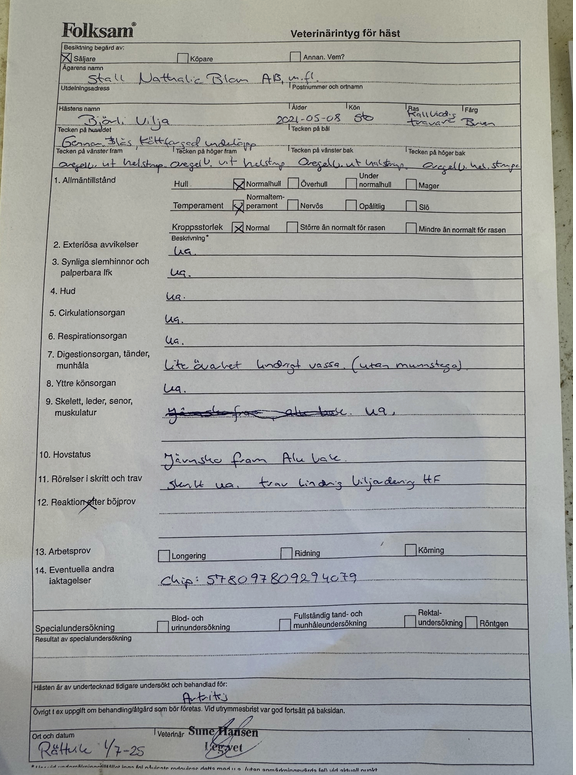 Folksam
Veterinärintyg för häst
Besiktning begärd av:
Säljare Köpare Annan. Vem?
Ägarens namn
Stall Nathalie Blom AB, m.fl.
Utdelningsadress Postnummer och ortnamn
Hästens namn Ålder Kön Ras Färg
Björli Vilja 2021-05-08 Sto Kallblodig travare Brun
Tecken på huvudet Tecken på bål
Genom. Bläs, underläpp
Tecken på vänster fram Tecken på höger fram Tecken på vänster bak Tecken på höger bak
oregelb. vit helstrump oregelb. vit helstrump oregelb. vit halvstrump oregelb. hel.strumpa
1. Allmäntillstånd Hull Normalhull Överhull Under normalhull Mager
Temperament Normaltemperament Nervös Opålitlig Slö
Kroppsstorlek Normal Större än normalt för rasen Mindre än normalt för rasen
Beskrivning*
2. Exteriösa avvikelser ua.
3. Synliga slemhinnor och palperbara lfk ua.
4. Hud ua.
5. Cirkulationsorgan ua.
6. Respirationsorgan ua.
7. Digestionsorgan, tänder, munhåla Lite lindrigt vassa. (utan munstege)
8. Yttre könsorgan ua.
9. Skelett, leder, senor, muskulatur Järnsko fram, alu bak. ua.
10. Hovstatus Järnsko fram Alu bak
11. Rörelser i skritt och trav skritt ua. trav lindrig HF
12. Reaktion efter böjprov
13. Arbetsprov Longering Ridning Körning
14. Eventuella andra iaktagelser Chip: 578097809294079
Specialundersökning Blod- och urinundersökning Fullständig tand- och munhåleundersökning Rektalundersökning Röntgen
Resultat av specialundersökning
Hästen är av undertecknad tidigare undersökt och behandlad för:
Artrit
Övrigt t ex uppgift om behandling/åtgärd som bör företas. Vid utrymmesbrist var god fortsätt på baksidan.
Ort och datum Veterinär Sune Hansen
Rättvik 1/7-25 Legvet